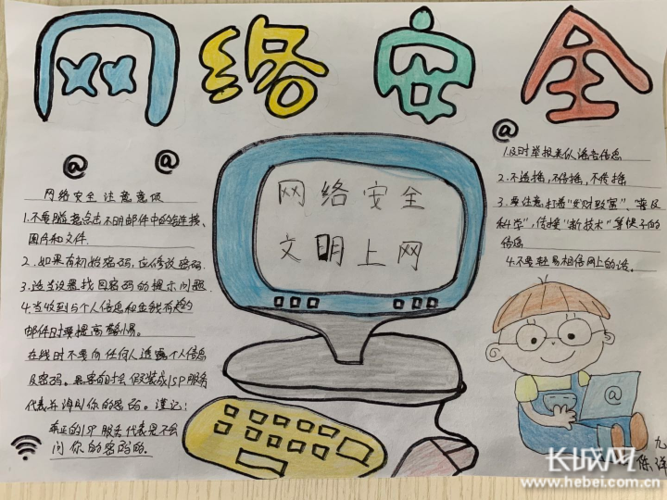 网络安全
@ @
网络安全注意意识
1.不要随意点击不明邮件中的链接、
图片和文件.
2.如果有初始密码,应修改密码.
3.适当设置找回密码的提示问题.
4.当收到与个人信息和金钱有关的
邮件时要提高警惕。
在线时不要向任何人透露个人信息
及密码。黑客有时会假装成ISP服务
代表并询问你的密码。谨记:
真正的ISP服务代表是不会
问你的密码的。
网络安全
文明上网
@
1.及时举报类似谣言信息
2.不造谣,不信谣,不传谣
3.要注意,打着"发财致富"、"普及
科学",传授"新技术"等幌子的
信息
4.不要轻易相信网上的话。
@
九
长城网
www.hebei.com.cn